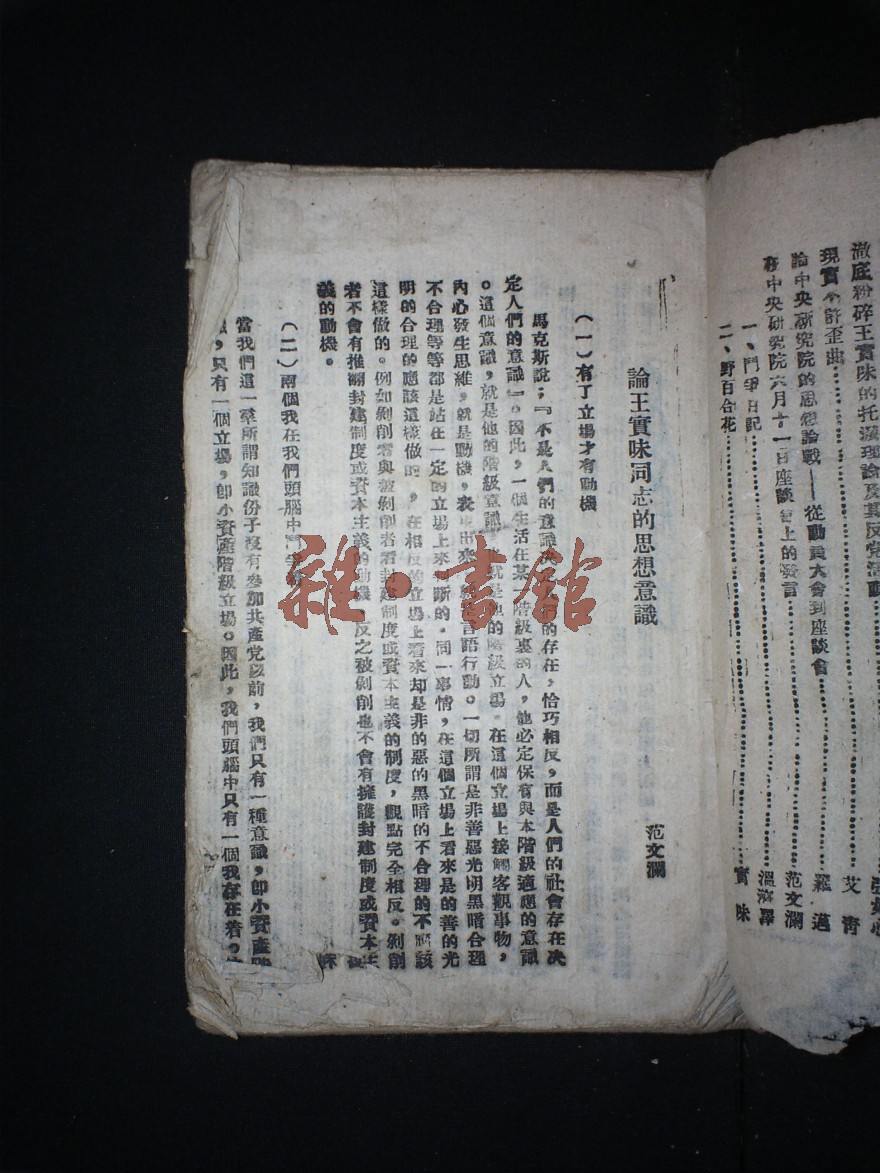 澈底粉碎王實味的托派理論及其反党活動
現實不許歪曲
艾青
論中央研究院的思想論戰——從動員大會到座談會
羅邁
在中央研究院六月十一日座談會上的發言
范文瀾
一、鬥爭日記
溫濟澤
二、野百合花
實味
論王實味同志的思想意識
范文瀾
（一）有了立場才有動機
馬克斯說；『不是人們的意識決定人們的存在，恰巧相反，而是人們的社會存在决
定人們的意識』。因此，一個生活在某一階級裏的人，他必定保有與本階級適應的意識
。這個意識，就是他的階級意識，也就是他的階級立場。在這個立場上接觸客觀事物，
內心發生思維，就是動機，表出來就是言語行動。一切所謂是非善惡光明黑暗合理
不合理等等都是站在一定的立場上來判斷的。同一事情，在這個立場上看來是的善的光
明的合理的應該這樣做的，在相反的立場上看來却是非的惡的黑暗的不合理的不應該
這樣做的。例如剝削者與被剝削者看封建制度或資本主義的制度，觀點完全相反。剝削
者不會有推翻封建制度或資本主義的動機，反之被剝削也不會有擁護封建制度或資本主
義的動機。
（二）兩個我在我們頭腦中鬥爭
當我們這一羣所謂知識份子沒有參加共產党以前，我們只有一種意識，卽小資產階
，只有一個立場，卽小資產階級立場。因此，我們頭腦中只有一個我存在着。